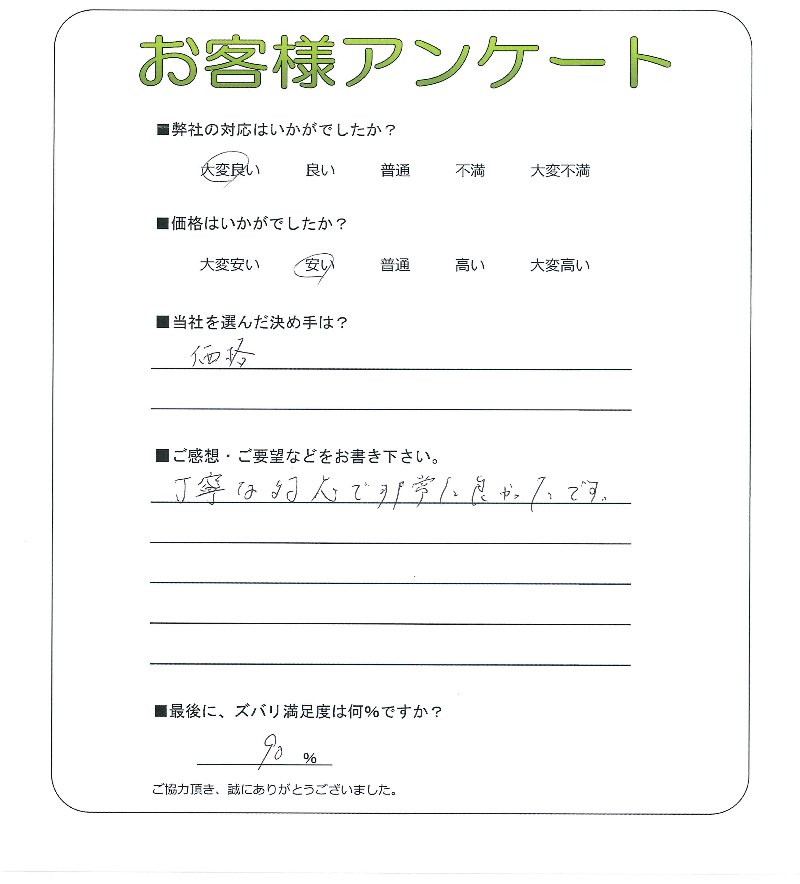 お客様アンケート
■弊社の対応はいかがでしたか？
大変良い 良い 普通 不満 大変不満
■価格はいかがでしたか？
大変安い 安い 普通 高い 大変高い
■当社を選んだ決め手は？
価格
■ご感想・ご要望などをお書き下さい。
丁寧な対応で非常に良かったです。
■最後に、ズバリ満足度は何%ですか？
90 %
ご協力頂き、誠にありがとうございました。